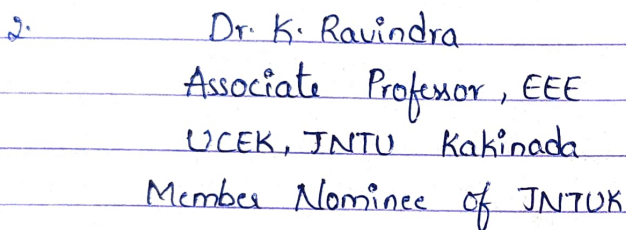 2. Dr. K. Ravindra
Associate Professor, EEE
UCEK, JNTU Kakinada
Member Nominee of JNTUK